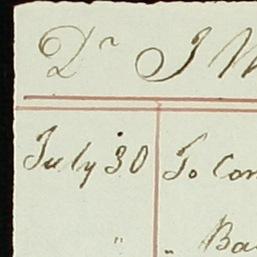 Dr J W
July 30 To Con
" " Ba